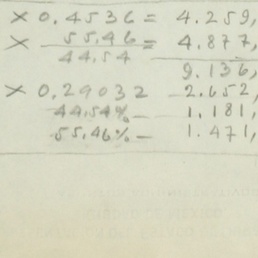 × 0.4536 = 4.259,
× 55.46 = 4.877,
44.54
9.136,
× 0.29032 2.652,
44.54% — 1.181,
55.46% — 1.471,